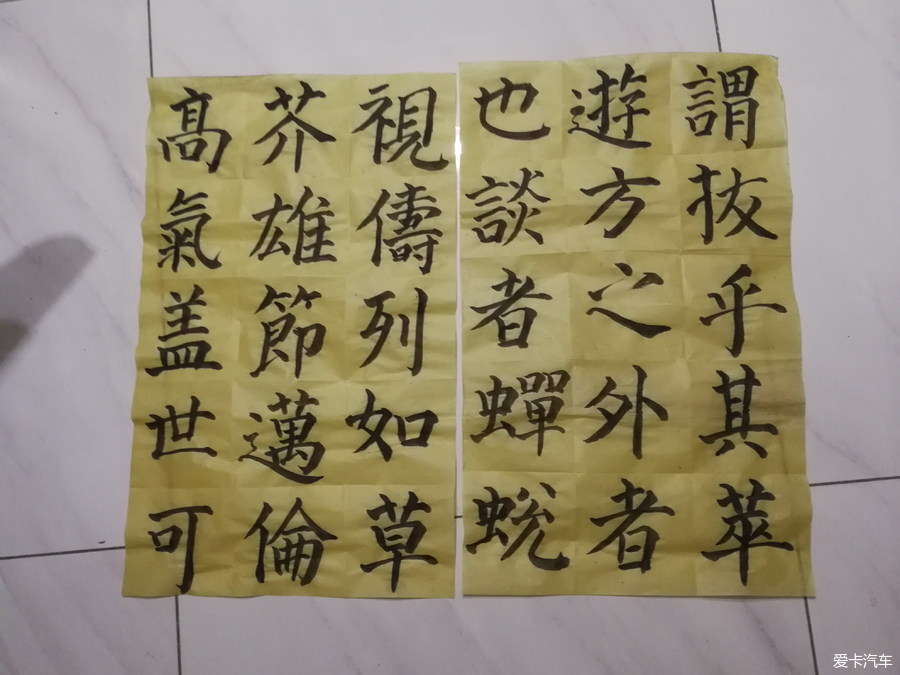 謂拔乎其萃
遊方之外者
也談者蟬蛻
視儔列如草
芥雄節邁倫
髙氣盖世可
爱卡汽车